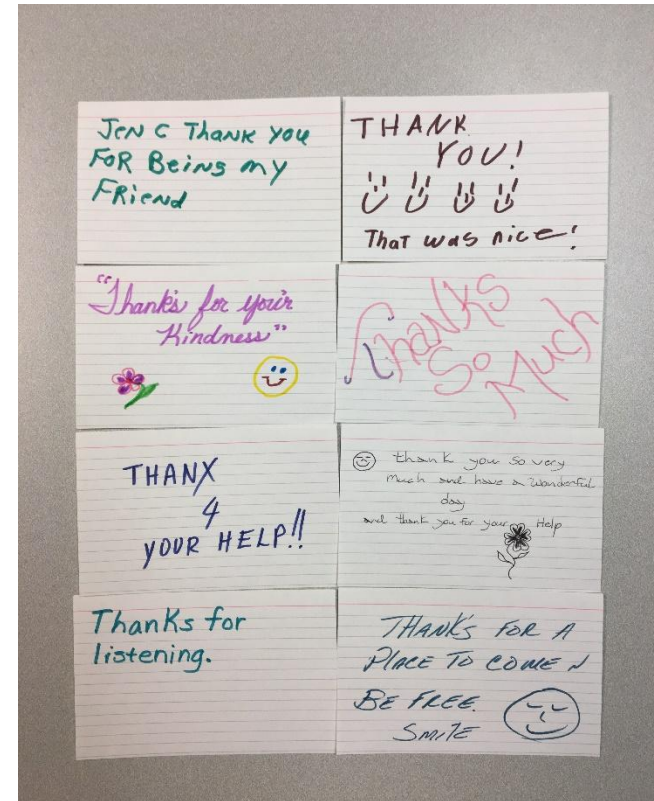 JEN C THANK YOU
FOR BEING my
FRIEND
THANK
YOU!
THAT was nice!
"Thanks for your
Kindness"
Thanks
So
Much
THANX
4
YOUR HELP!!
thank you so very
much and have a wonderful
day
and thank you for your Help
Thanks for
listening.
THANKS FOR A
PLACE TO COME N
BE FREE.
SMILE